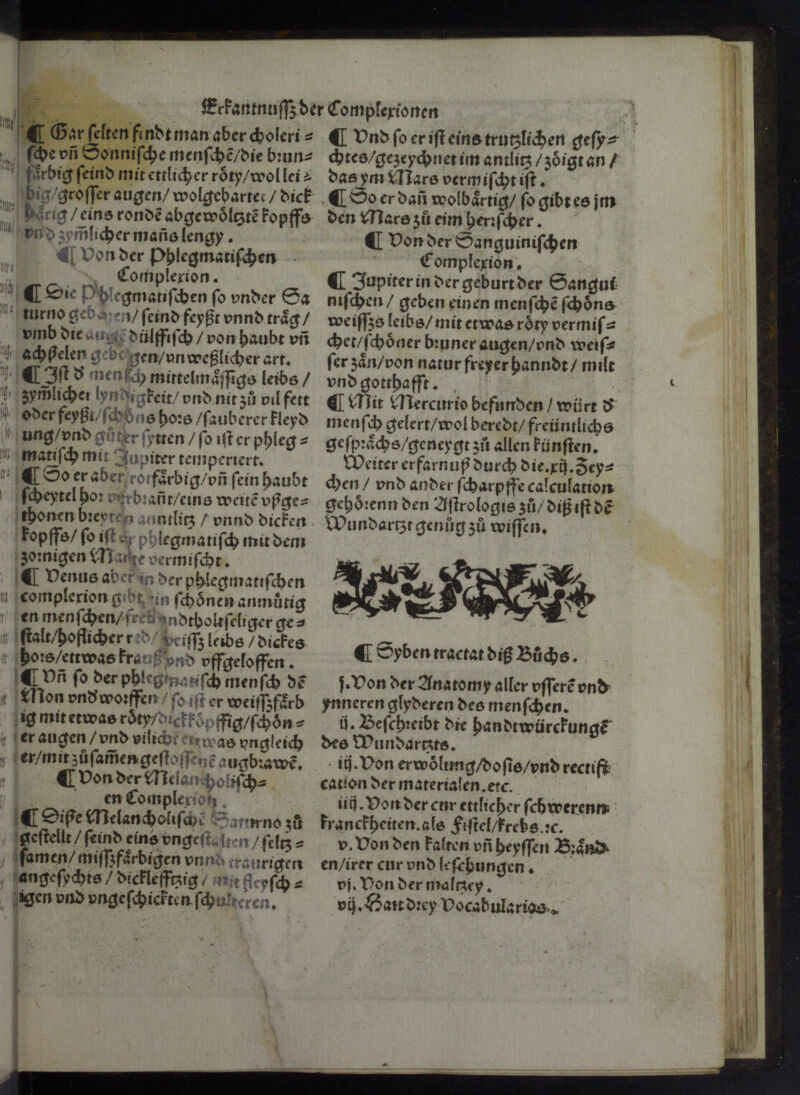 Erkantnuſſz der Complexionen
¶ Gar ſelten findt man aber choleri⸗
ſche vñ Sonniſche menſchẽ/die brun⸗
farbig ſeind mit ettlicher rôty/wol lei⸗
big/groſſer augen/ wolgebartet / dick
hårig / eins rondẽ abgewôlgtẽ kopffs
vnd zymlicher mañs lengy.
¶ Von der Phlegmatiſchen
Complexion.
¶ Die Phlegmatiſchen ſo vnder Sa
turno geboren/ ſeind feyßt vnnd tråg /
vmb die augẽ dülffiſch / von haubt vñ
achßelen gebogen/vn weßlicher art.
¶ Iſt d̕ menſch mittelmåſſigs leibs /
zymlicher lyndigkeit/ vnd nit zů vil fett
oder feyßt/ ſchôns hors /ſauberer kleyd
ung/vnd gůter ſytten / ſo iſt er phleg⸗
matiſch mit Jupiter temperiert.
¶ So er aber rotfårbig/vñ ſein haubt
ſcheytel hor verbrañt/eins weitẽ vßge⸗
thonen breyten anntlitz / vnnd dicken
kopffs/ ſo iſt er phlegmatiſch mit dem
zornigen Marte vermiſcht.
¶ Venus aber in der phlegmatiſchen
complexion gibt ein ſchônen anmůtig
en menſchen/ holtſeliger ge⸗
ſtalt/hoflicher red/ weiſſz leibs / dickes
hors/ettwas krauß vnd vffgeloſſen.
¶ Vñ ſo der phlegmatiſch menſch dẽ
Mon vndworffen / ſo iſt er weiſſzfårb
ig mit etwas rôty/dickkôpffig/ſchôn⸗
er augen / vnd vilicht ettwas vngleich
er/mit zůſamengeſtoſſenẽ augbrawẽ.
¶ Von der Melancholiſch⸗
en Complexion.
¶ Diße Melancholiſchẽ Saturno zů
geſtellt / ſeind eins vngeſtalten / ſeltz⸗
ſamen/ miſſzfarbigen vnnd traurigen
angeſychts / dicklefftzig / mit fleyſch⸗
igen vnd vngeſchickten ſchulteren.
¶ Vnd ſo er iſt eins trutzlichen geſy⸗
chtes/gezeychnet im antlitz / zôigt an /
das ym Mars vermiſcht iſt.
¶ So er dañ wolbårtig/ ſo gibt es jm
den Mars zů eim herrſcher.
¶ Von der Sanguiniſchen
Complexion.
¶ Jupiter in der geburt der Sangui
niſchen / geben einen menſchẽ ſchôns
weiſſzs leibs/ mit etwas rôty vermiſ⸗
chet/ſchôner bruner augen/vnd weiſ⸗
ſer zån/von natur freyer hanndt / milt
vnd gotthafft.
¶ Mit Mercurio befunden / würt d̕
menſch gelert/wol beredt/ freüntlichs
geſpråchs/geneygt zů allen künſten.
Weiter erfarnuß durch die.xij.Zey⸗
chen / vnd ander ſcharpffe calculation
gehôrenn den Aſtrologis zů/ diß iſt dẽ
Wundartzt genůg zů wiſſen.
¶ Syben tractat diß Bůchs.
j.Von der Anatomy aller vſſerẽ vnd
ynneren glyderen des menſchen.
ij. Beſchreibt die handtwürckungẽ
des Wundartzts.
iij.Von erwôlung/doſis/vnd rectifi
cation der materialen.etc.
iiij.Von der cur ettlicher ſchwerenn
kranckheiten.als fiſtel/krebs.ꝛc.
v.Von den kalten vñ heyſſen Brånd
en/irer cur vnd leſchungen.
vj.Von der malatzey.
vij.Hatt drey Vocabularios.